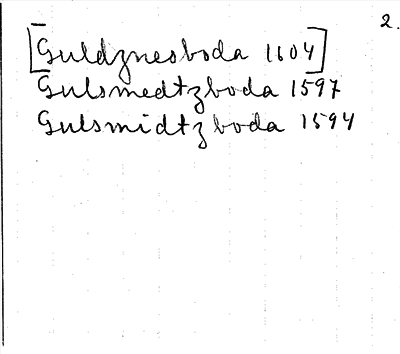 2.
[Guldznesboda 1604]
Gulsmedtzboda 1597
Gulsmidtzboda 1594